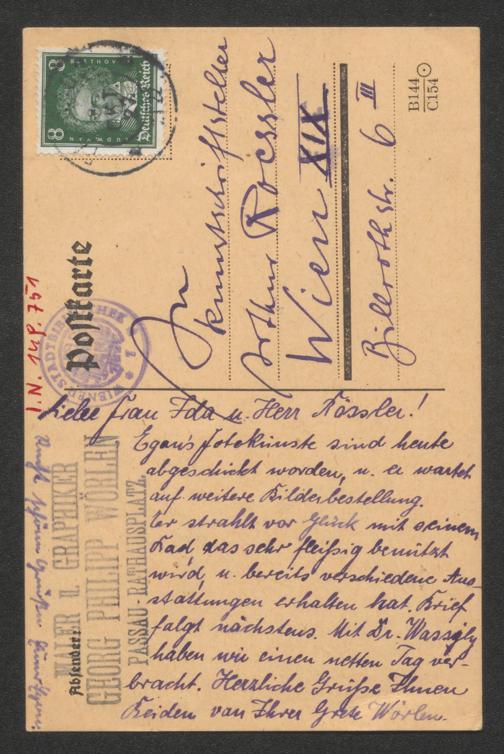 BEETHOVEN
LUDW. VAN
Deutsches Reich
8 8
B144
C154
Postkarte
WIENER STADTBIBLIOTHEK
I.N. 149.751
An
Kunstschriftsteller
Arthur Roessler
Wien XIX
Billrothstr. 6 III
Liebe Frau Ida u. Herr Rössler!
Egons Fotokünste sind heute
abgeschickt worden, u. er wartet
auf weitere Bilderbestellung.
Er strahlt vor Glück mit seinem
Rad, das sehr fleißig benützt
wird, u. bereits verschiedene Aus-
stattungen erhalten hat. Brief
folgt nächstens. Mit Dr. Wassgly
haben wir einen netten Tag ver-
bracht. Herzliche Grüße Ihnen
Beiden von Ihrer Grete Wörlen.
Absender:
MALER u. GRAPHIKER
GEORG PHILIPP WÖRLEN
PASSAU-RATHAUSPLATZ
schönen Grüßen